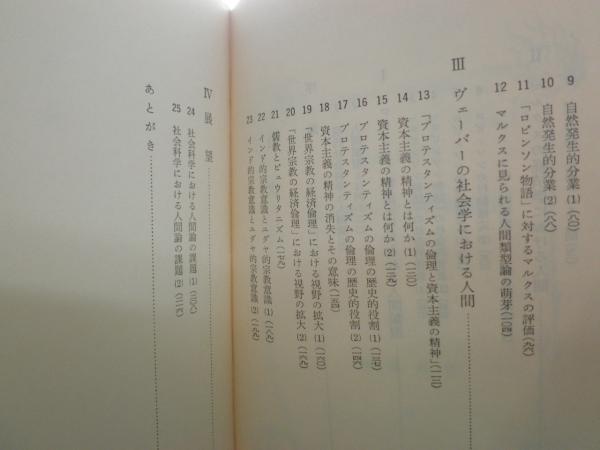 9 自然発生的分業 (1) (八〇)
10 自然発生的分業 (2) (八八)
11 「ロビンソン物語」に対するマルクスの評価 (九六)
12 マルクスに見られる人間類型論の萌芽 (一〇四)
III ヴェーバーの社会学における人間
13 『プロテスタンティズムの倫理と資本主義の精神』 (一一二)
14 資本主義の精神とは何か (1) (一二〇)
15 資本主義の精神とは何か (2) (一二九)
16 プロテスタンティズムの倫理の歴史的役割 (1) (一三七)
17 プロテスタンティズムの倫理の歴史的役割 (2) (一四六)
18 資本主義の精神の消失とその意味 (一五四)
19 『世界宗教の経済倫理』における視野の拡大 (1) (一六〇)
20 『世界宗教の経済倫理』における視野の拡大 (2) (一六九)
21 儒教とピュウリタニズム (一七九)
22 インド的宗教意識とユダヤ的宗教意識 (1) (一八九)
23 インド的宗教意識とユダヤ的宗教意識 (2) (一九九)
IV 展望
24 社会科学における人間論の課題 (1) (二〇八)
25 社会科学における人間論の課題 (2) (二一六)
あとがき